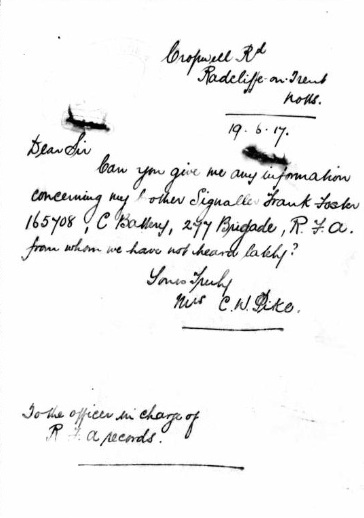 Cropwell Rd
Radcliffe-on-Trent
Notts.
19.6.17.
Dear Sir
Can you give me any information
concerning my brother Signaller Frank Foster
165708, C Battery, 277 Brigade, R.F.A.
from whom we have not heard lately?
Yours Truly
Mrs C.W. Pike.
To the officer in charge of
R F A records.